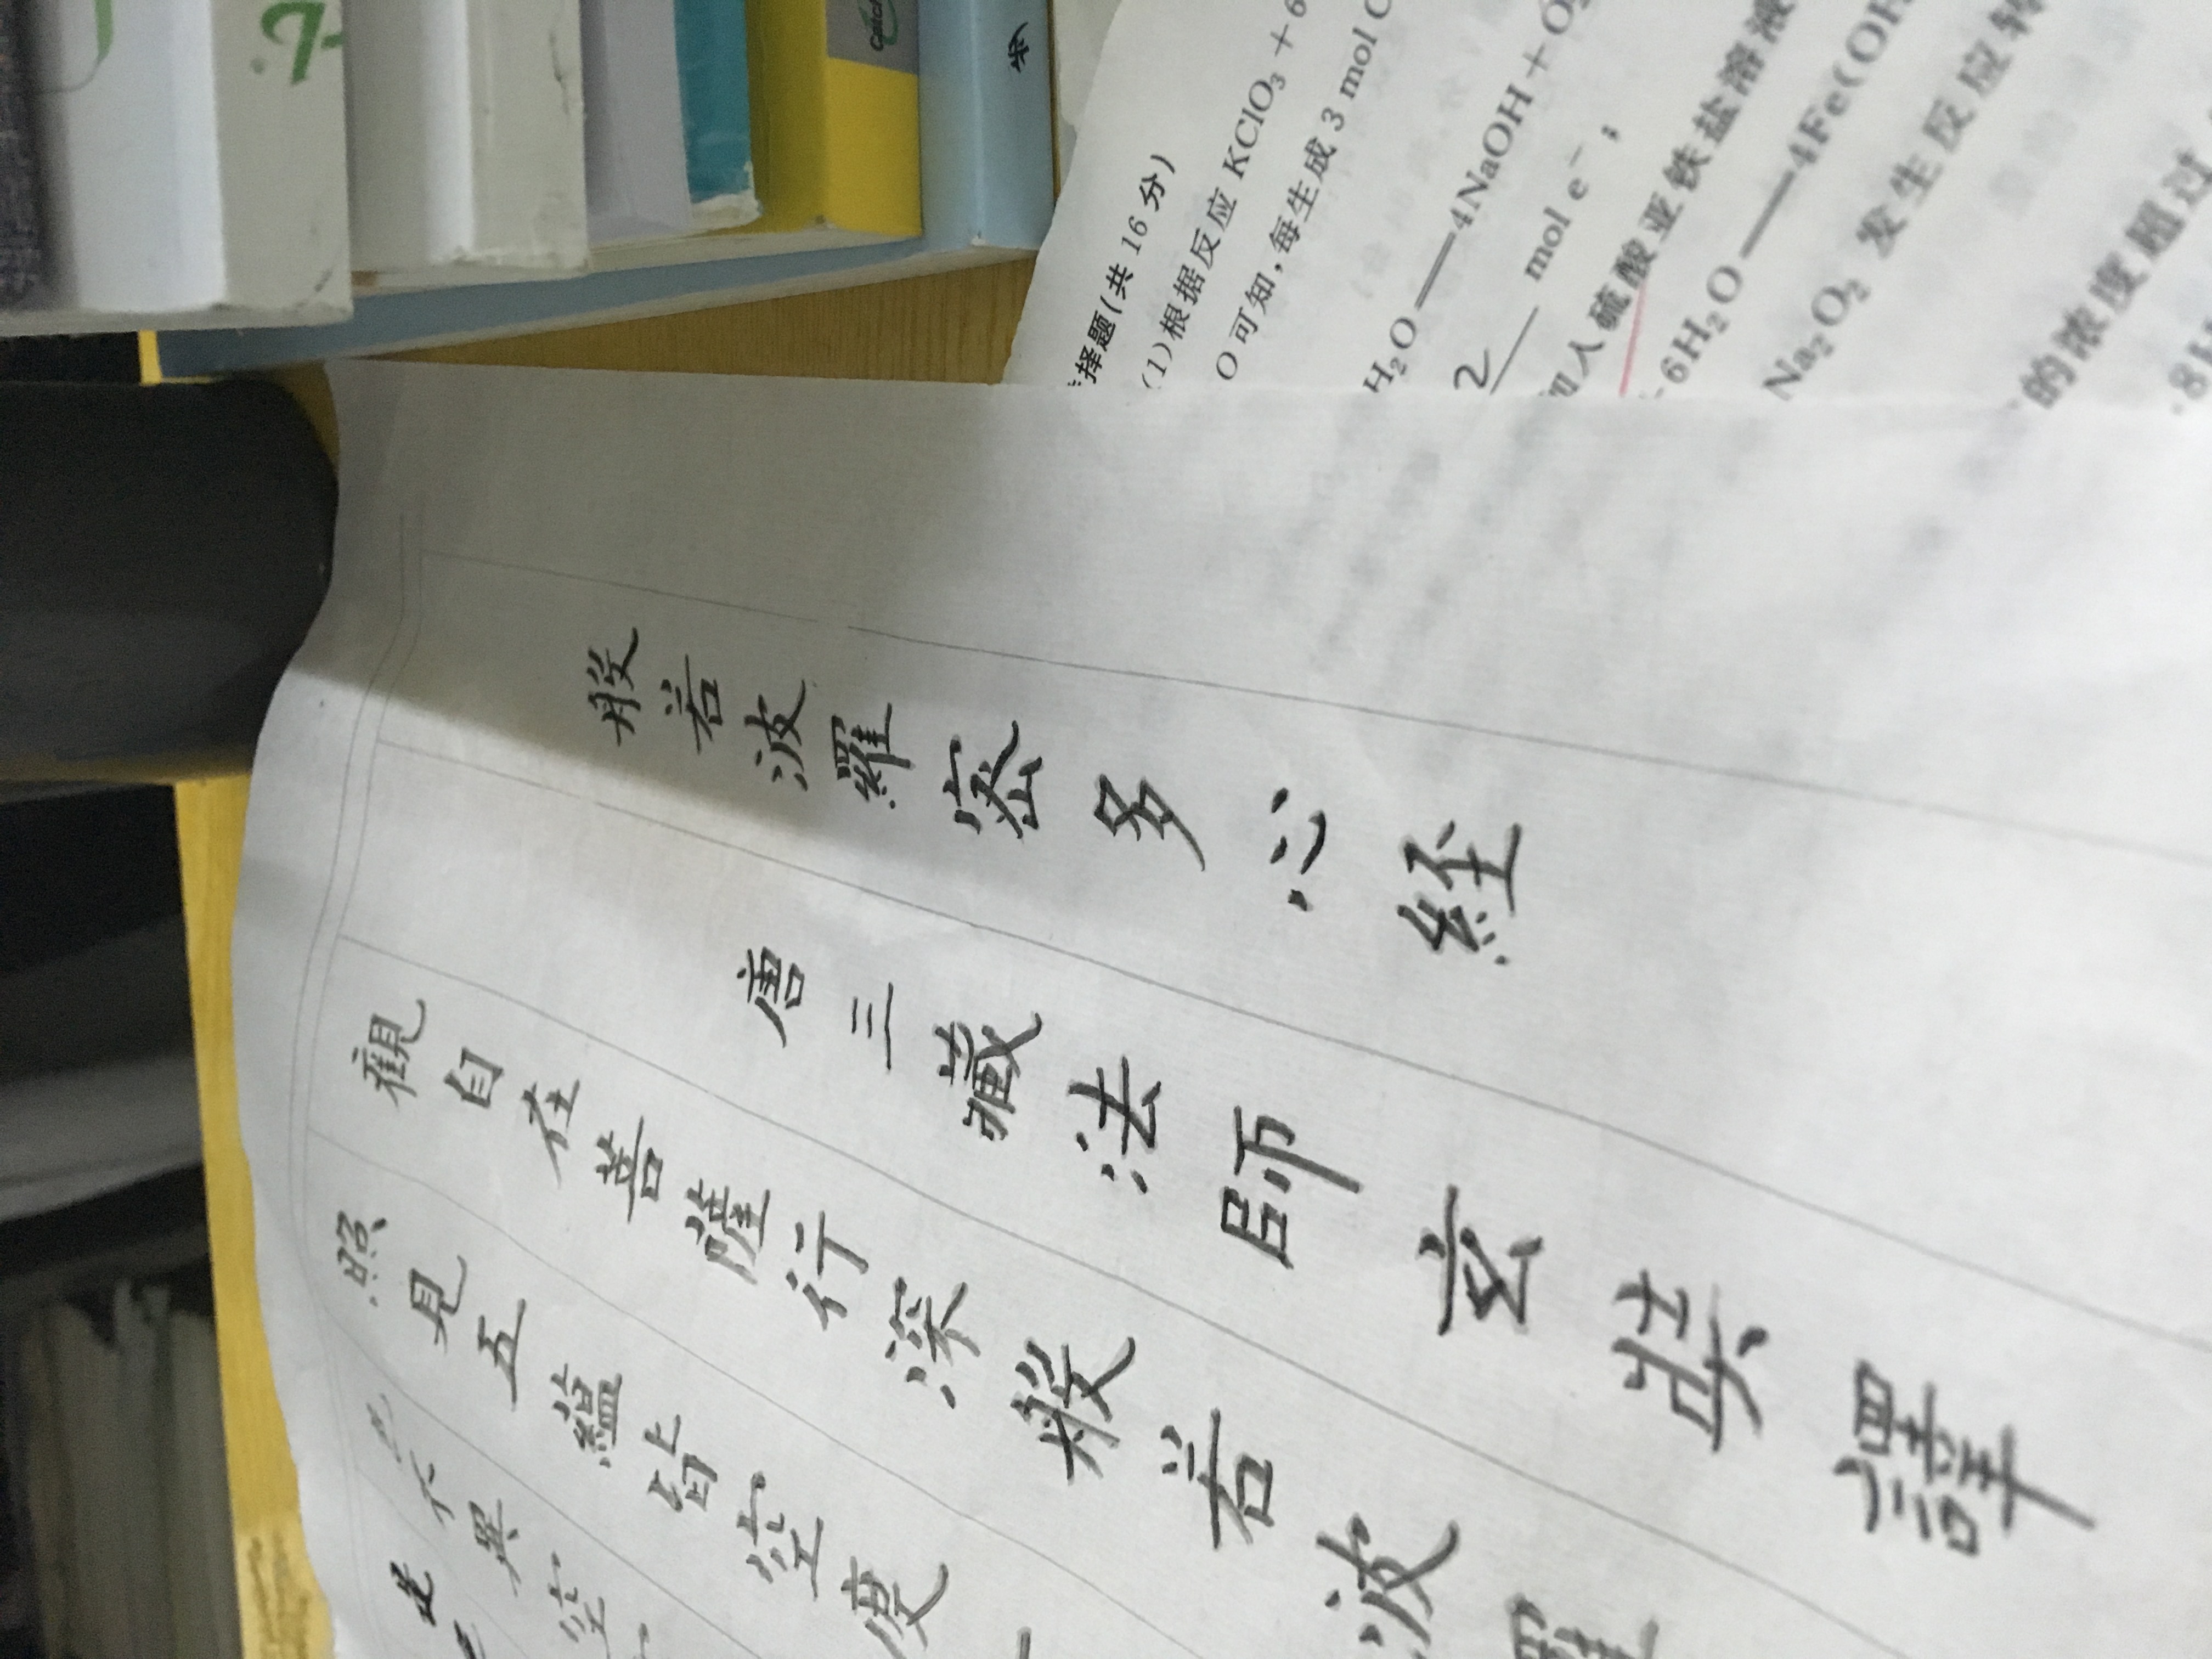 般若波羅密多心經
唐三藏法師玄奘譯
觀自在菩薩行深般若波羅
照見五蘊皆空度一
色不異空
是
择题(共 16 分)
(1)根据反应 KClO₃ + 6
O 可知,每生成 3 mol C
H₂O══4NaOH + O₂
2 mol e⁻;
加入硫酸亚铁盐溶液
6H₂O══4Fe(OH
Na₂O₂ 发生反应转
的浓度超过
8H
Catch